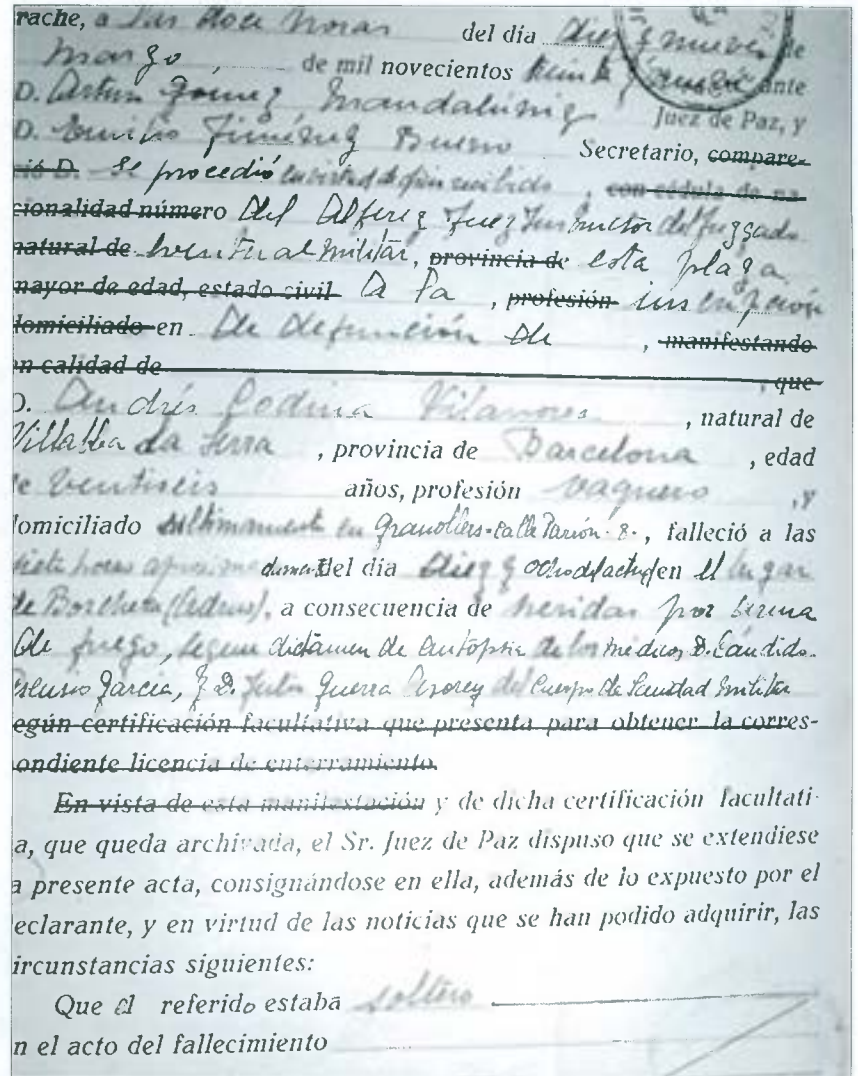 rache, a las doce horas del día diez y nueve de
Marzo, de mil novecientos treinta y nueve ante
D. Arturo Gómez Juez de Paz, y
D. Emilio Jiménez Bueno Secretario, compare-
ció D. Se procedió en virtud de oficio recibido, con cedula de na-
cionalidad número del Alferez Juez Instructor del Juzgado
natural de eventual militar, provincia de esta plaza
mayor de edad, estado civil a la, profesión inscripción
domiciliado en De defunción de, manifestando
en calidad de, que
D. Andrés Codina Vilanova, natural de
Villalba da Serra, provincia de Barcelona, edad
de Ventiseis años, profesión vaquero, y
domiciliado ultimamente en Granollers-calle 8-, falleció a las
siete horas aproximadamente del día diez y ocho del actual en el lugar
de (Cedeira), a consecuencia de heridas por arma
de fuego, según dictámen de autopsia de los médicos D. Candido
Garcia, y D. Julio Guerra del Cuerpo de Sanidad Militar
egún certificación facultativa que presenta para obtener la corres-
ondiente licencia de enterramiento.
En vista de esta manifestación y de dicha certificación facultati-
a, que queda archivada, el Sr. Juez de Paz dispuso que se extendiese
a presente acta, consignándose en ella, además de lo expuesto por el
eclarante, y en virtud de las noticias que se han podido adquirir, las
ircunstancias siguientes:
Que el referido estaba soltero
n el acto del fallecimiento